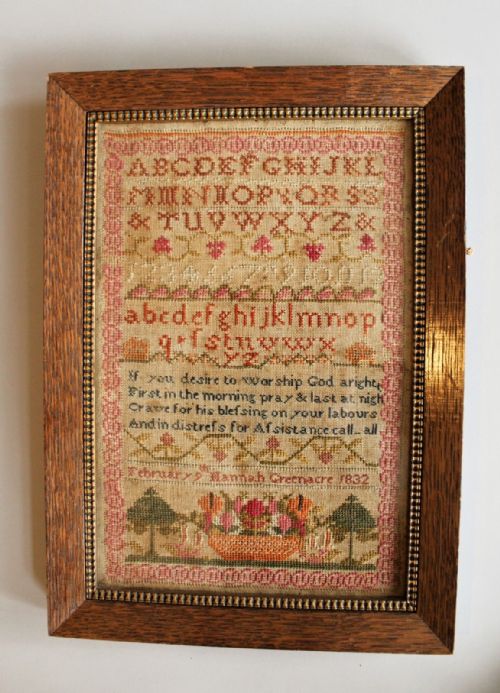 ABCDEFGHIJKL
MNOPQRSS
&TUVWXYZ&
abcdefghijklmnop
q•fstuvwx
yz
If you desire to worship God aright,
First in the morning pray & last at nigh
Crave for his blefsing on your labours
And in distrefs for Afsistance call.. all
February 9th Hannah Greenacre 1832